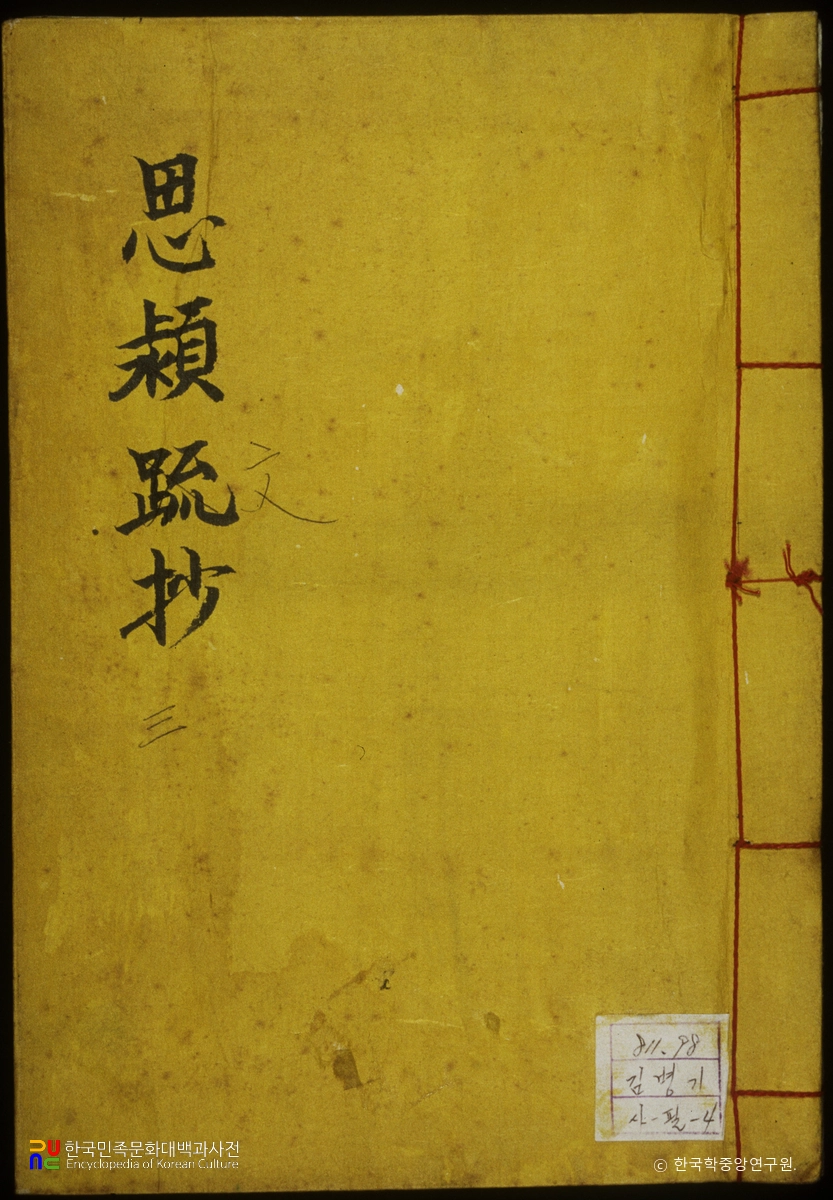 思潁䟽抄
文
三
811.98
김병기
사-필-4
한국민족문화대백과사전
Encyclopedia of Korean Culture
ⓒ 한국학중앙연구원.